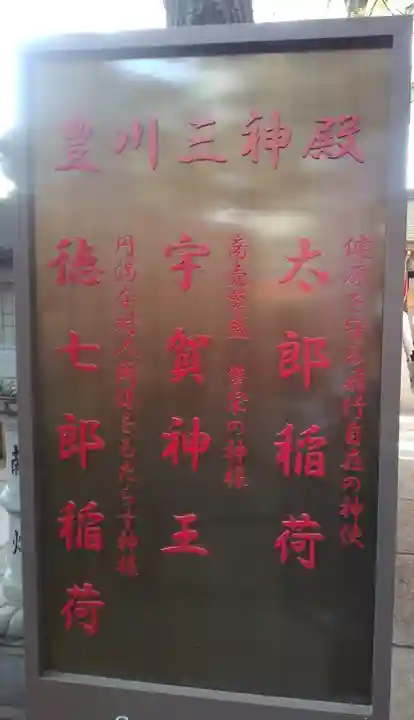 豊川三神殿
健康を守る神行自在の神使
太郎稲荷
商売繁盛 繁栄の神様
宇賀神王
円満な対人関係をもたらす神様
徳七郎稲荷
献灯